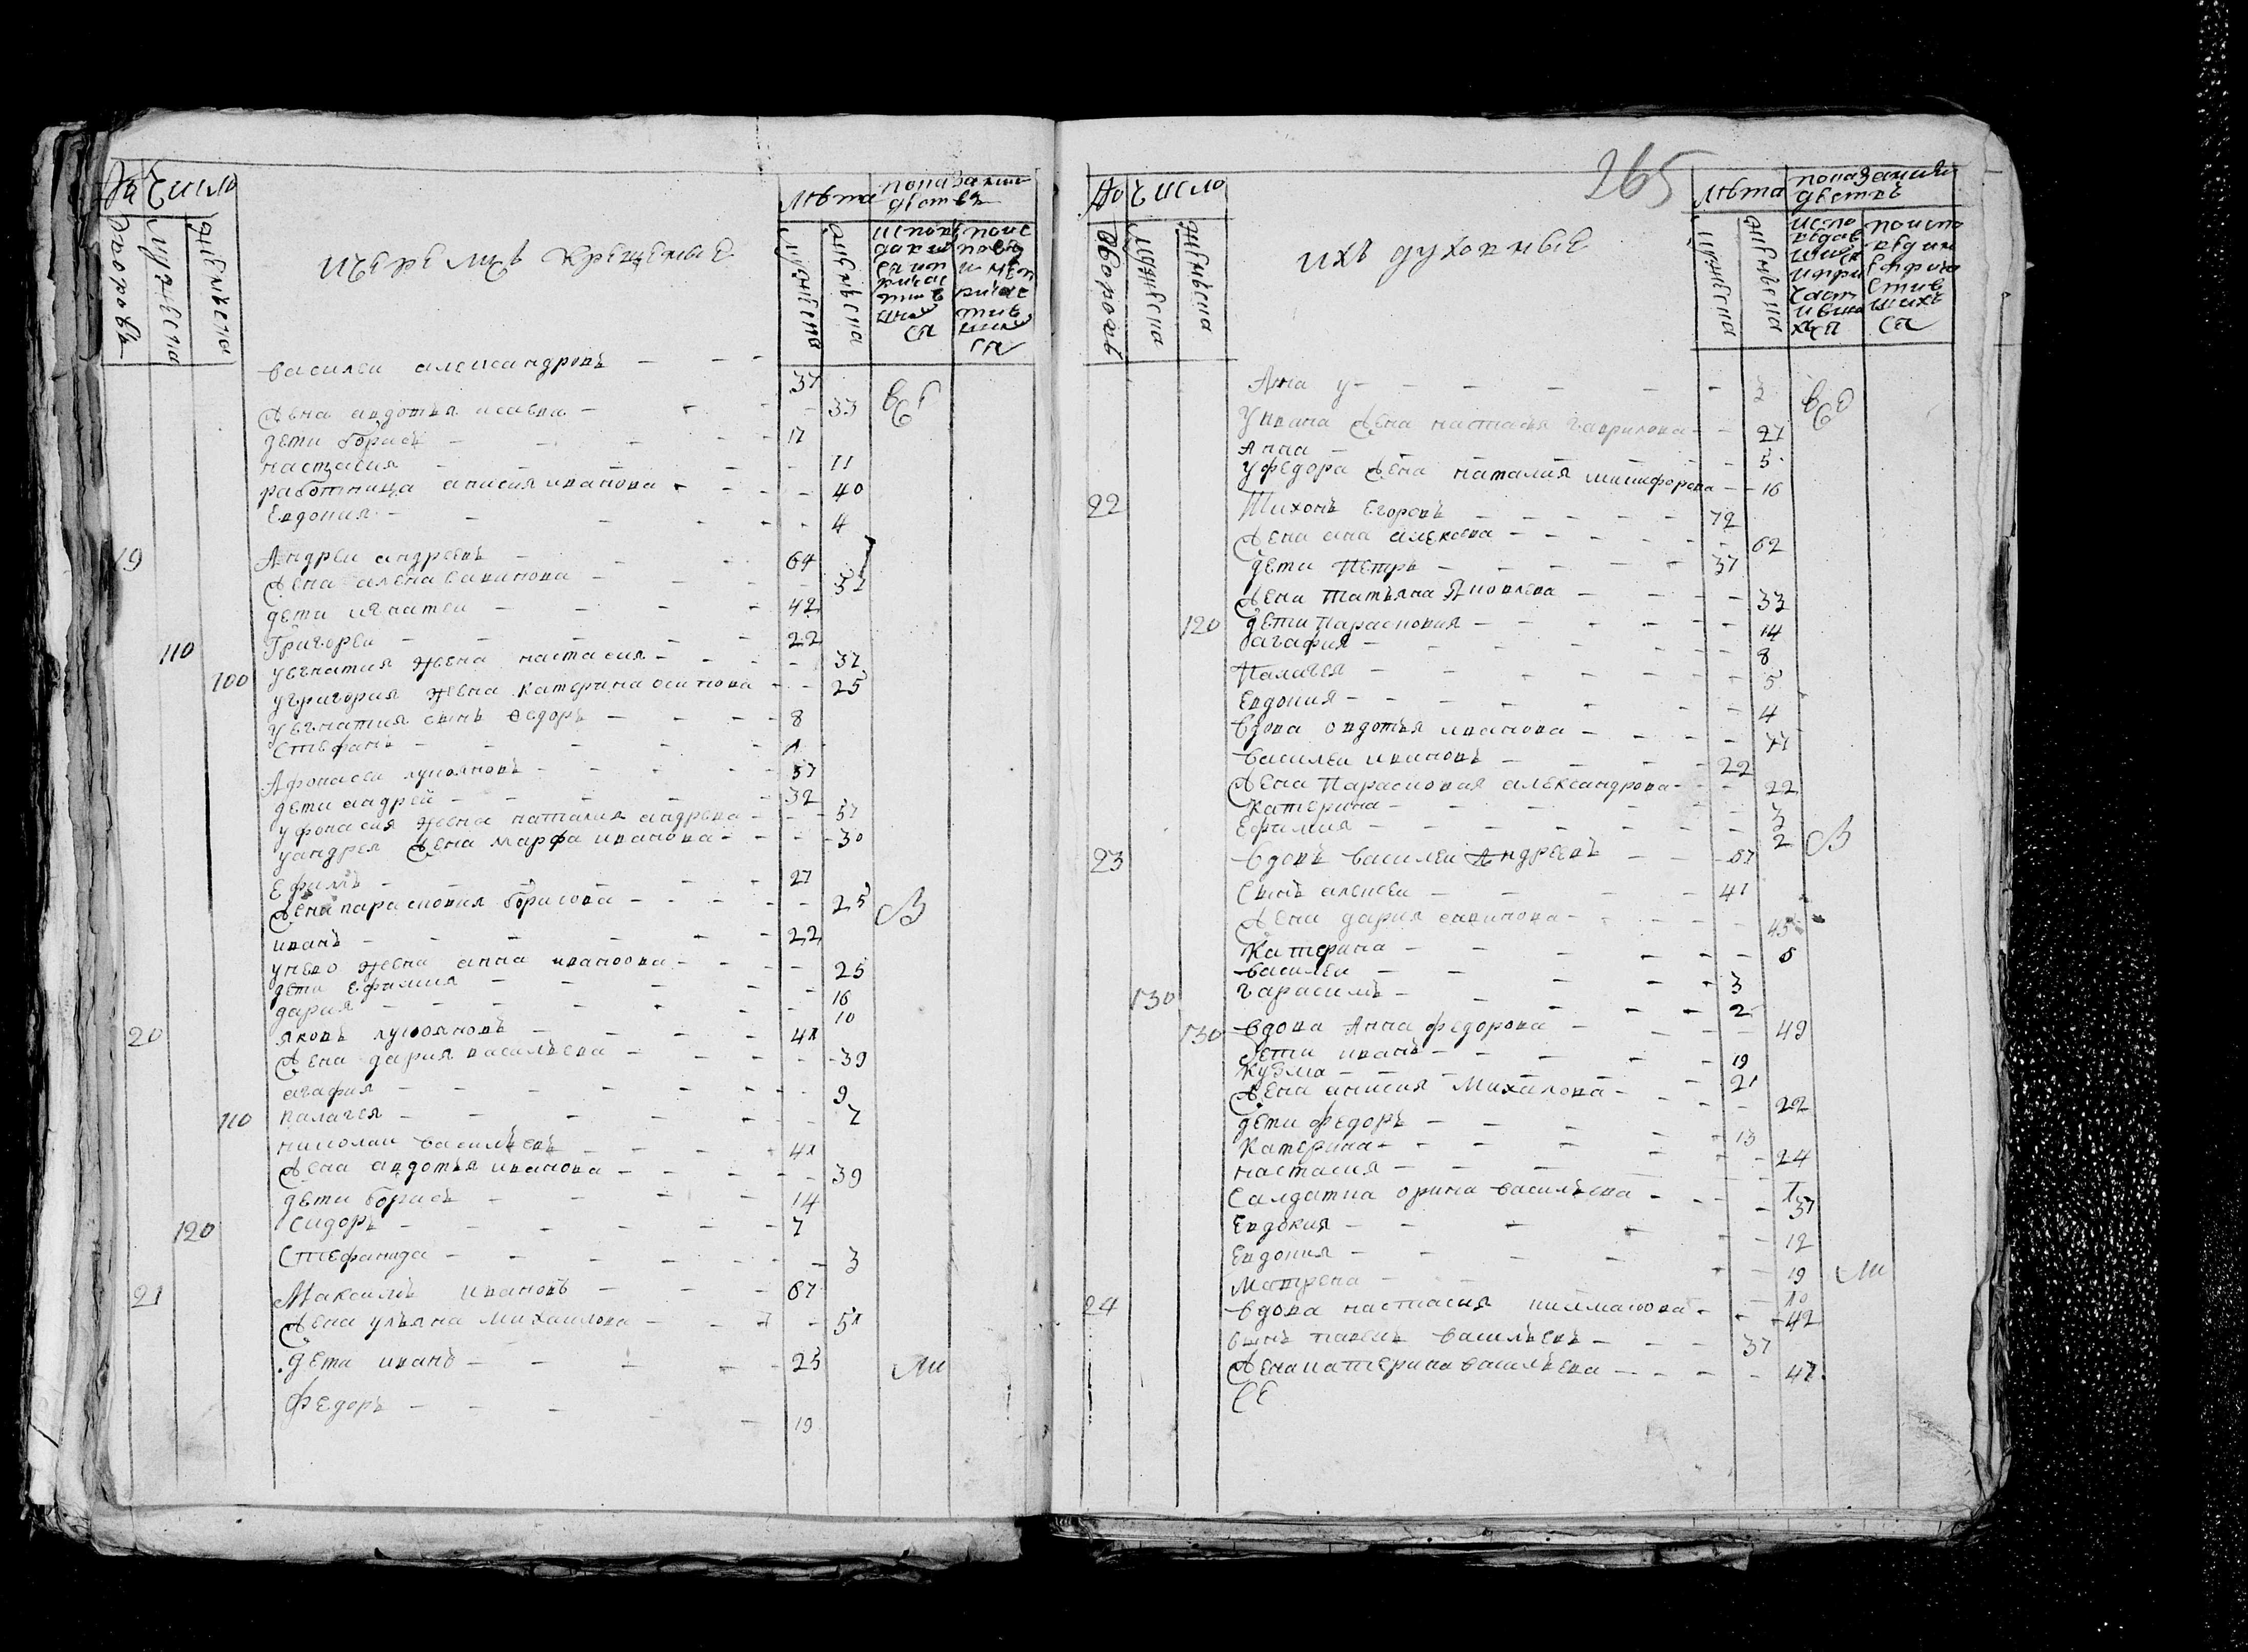 Число
лѣта
показании
дѣствъ
дворовъ
мужеска
женьска
мужеска
женьска
василеи александровъ 37
жена авдотья исаева 33
дети борисъ 17
настасия 11
работница анисия иванова 40
Евдокия 4
19 Андреи андреевъ 64
жена алена савинова
дети игнатеи 42
110 Григореи 22
100 уегнатия жена настасия 37
угригория жена катерина осипова 25
уегнатия сынъ федоръ 8
Стефанъ 1
Афонасеи лукояновъ 57
дети андреи 32
уфонасия жена наталия андреева 57
уандрея жена марфа иванова 30
Ефимъ 27
жена парасковия борисова 25
иванъ 22
унево жена анна иванова 25
дети Ефимия 16
дария 10
20 яковъ лукояновъ 41
жена дария васильева 39
агафия 9
110 палагея 7
николаи васильевъ 41
жена авдотья иванова 39
дети борисъ 14
120 Сидоръ 7
Стефанида 3
21 Максимъ ивановъ 67
жена ульяна михаилова 51
дети иванъ 25
Федоръ 19
265
Число
лѣта
показании
дѣствъ
ихъ духовные
дворовъ
мужеска
женьска
мужеска
женьска
Анна у
уивана жена настасья гаврилова 27
Анна 5
уфедора жена наталия никифорова 16
22 Тихонъ Егоровъ 72
жена ана алексева 62
дети Петръ 37
жена татьяна Яковлева 33
120 дети Парасковия 14
агафия 8
Палагея 5
Евдокия 4
вдова овдотья иванова 77
василеи ивановъ 22
жена Парасковия александрова 22
катерина 3
Ефимия 2
23 вдовъ василеи Андреевъ 67
Сынъ алексеи 41
жена дария савинова 45
Катерина
василеи 3
130 гарасимъ 2
130 вдова Анна федорова 49
дети иванъ 19
Кузма 21
жена анисия Михалова 22
дети федоръ 13
Катерина 24
настасия
Салдатка орина васильева 37
Евдокия 12
Евдокия 19
Матрена 10
24 вдова настасия 42
сынъ павелъ васильевъ 37
жена катерина васильева 47